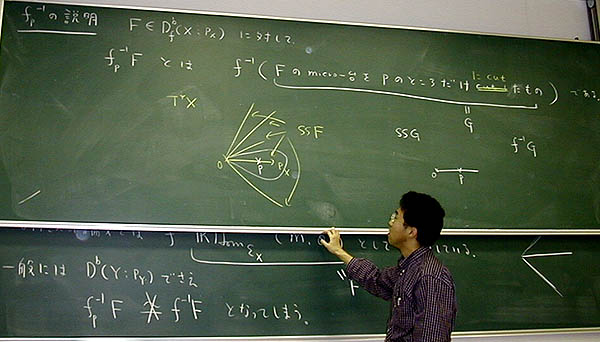 f_p^{-1} の説明
F ∈ D_f^b(X : P_X) に対して,
f_p^{-1}F とは f^{-1}( Fの micro-台を Pのところだけ cut したもの ) である
に cut
T*X
SSF
SSG
|| G
f^{-1}G
0 P P_X
0 P
f RHom_{ε_X} ( m, として
一般には D^b(Y : P_Y) でさえ
|| F
f_p^{-1}F ≄ f^{-1}F となってしまう.